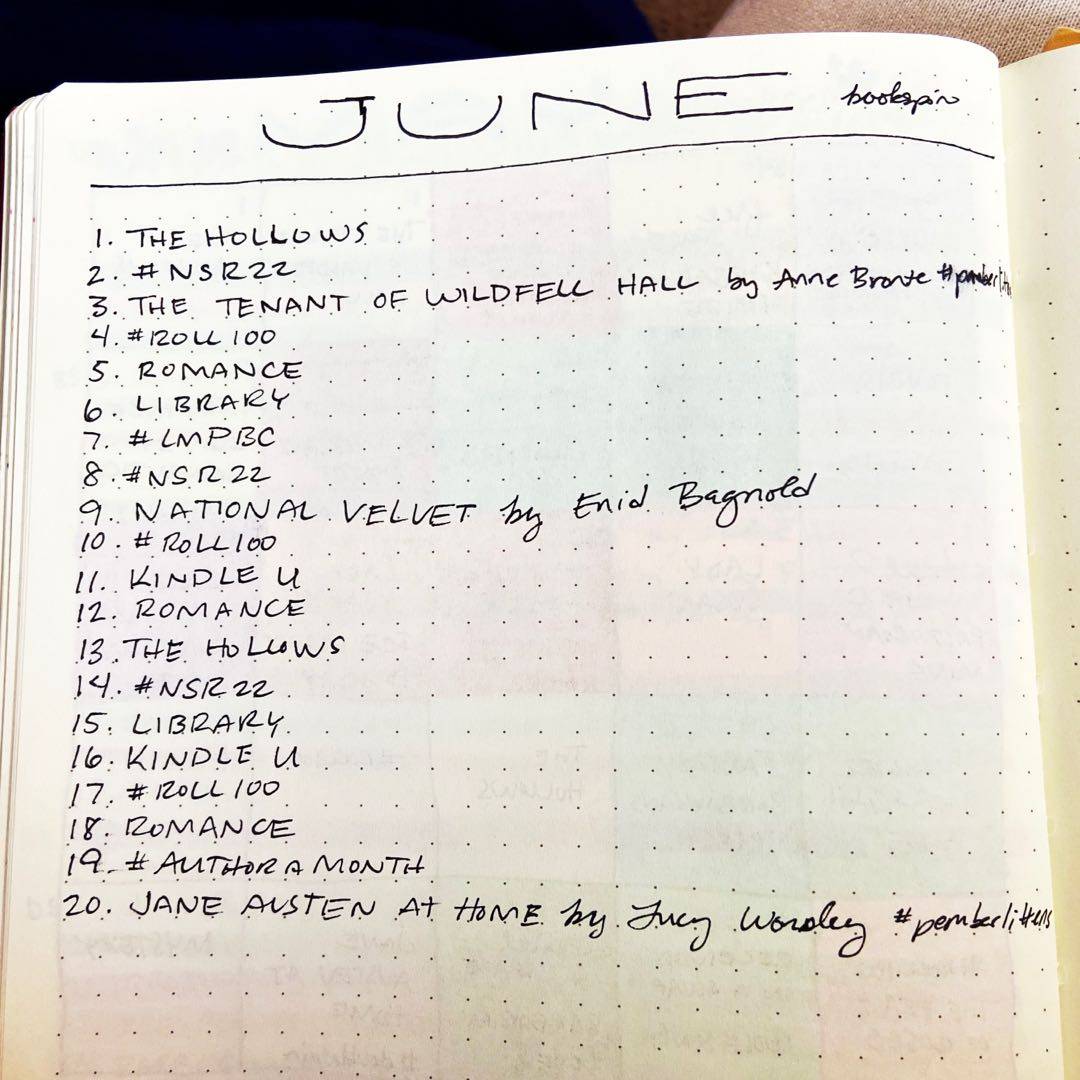 JUNE bookspin
1. THE HOLLOWS
2. #NSR22
3. THE TENANT OF WILDFELL HALL by Anne Bronte
4. #ROLL100
5. ROMANCE
6. LIBRARY
7. #LMPBC
8. #NSR22
9. NATIONAL VELVET by Enid Bagnold
10. #ROLL100
11. KINDLE U
12. ROMANCE
13. THE HOLLOWS
14. #NSR22
15. LIBRARY
16. KINDLE U
17. #ROLL100
18. ROMANCE
19. #AUTHORAMONTH
20. JANE AUSTEN AT HOME by Lucy Worsley #pemberlittens